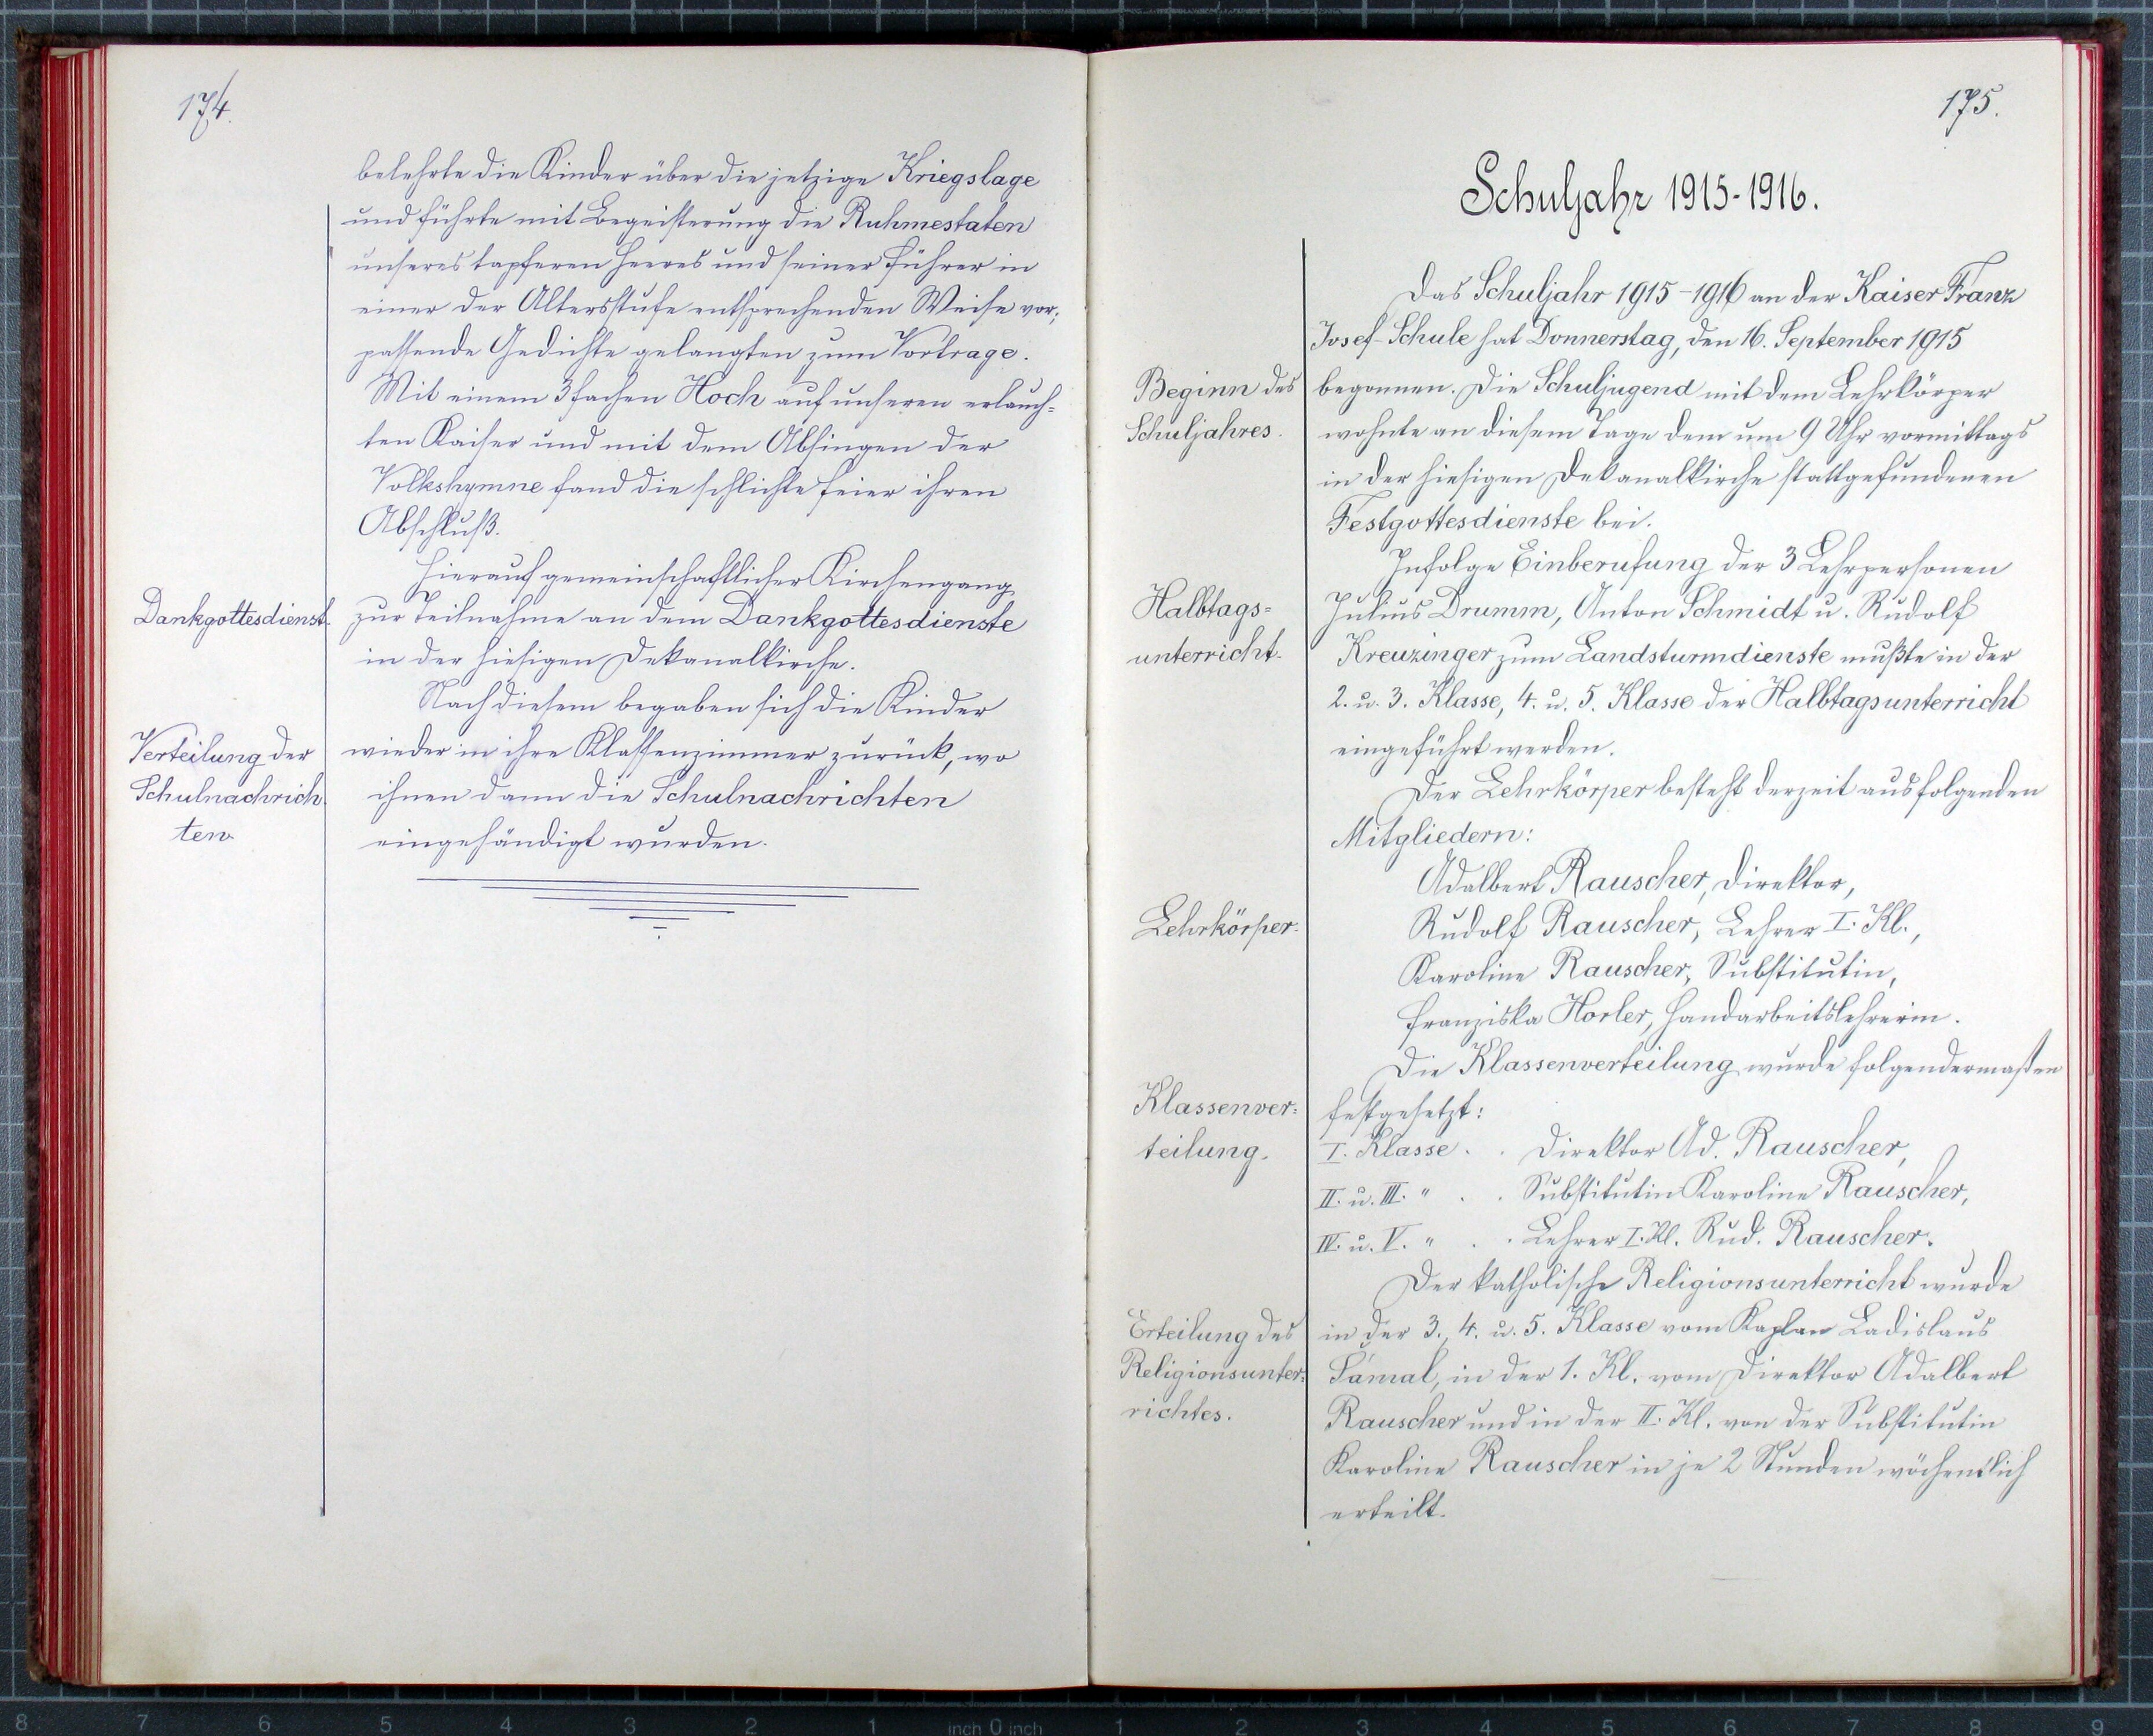 174.
belehrte die Kinder über die jetzige Kriegslage
und führte mit Begeisterung die Ruhmestaten
unseres tapferen Heeres und seiner Führer in
einer der Altersstufe entsprechenden Weise vor;
passende Gedichte gelangten zum Vortrage.
Mit einem 3fachen Hoch auf unseren erlauch-
ten Kaiser und mit dem Absingen der
Volkshymne fand die schlichte Feier ihren
Abschluß.
Hierauf gemeinschaftlicher Kirchengang
Dankgottesdienst.
zur Teilnahme an dem Dankgottesdienste
in der hiesigen Dekanalkirche.
Nach diesem begaben sich die Kinder
Verteilung der
Schulnachrich-
ten.
wieder in ihre Klassenzimmer zurück, wo
ihnen dann die Schulnachrichten
eingehändigt wurden.
175.
Schuljahr 1915-1916.
Das Schuljahr 1915-1916 an der Kaiser Franz
Josef-Schule hat Donnerstag, den 16. September 1915
Beginn des
Schuljahres.
begonnen. Die Schuljugend mit dem Lehrkörper
wohnte an diesem Tage dem um 9 Uhr vormittags
in der hiesigen Dekanalkirche stattgefundenen
Festgottesdienste bei.
Infolge Einberufung der 3 Lehrpersonen
Halbtags-
unterricht.
Julius Drumm, Anton Schmidt u. Rudolf
Kreuzinger zum Landsturmdienste mußte in der
2. u. 3. Klasse, 4. u. 5. Klasse der Halbtagsunterricht
eingeführt werden.
Der Lehrkörper besteht derzeit aus folgenden
Mitgliedern:
Adalbert Rauscher, Direktor,
Lehrkörper.
Rudolf Rauscher, Lehrer I. Kl.,
Karoline Rauscher, Substitutin,
Franziska Horler, Handarbeitslehrerin.
Die Klassenverteilung wurde folgendermaßen
Klassenver-
teilung.
festgesetzt:
I. Klasse . . Direktor Ad. Rauscher,
II. u. III. " . . Substitutin Karoline Rauscher,
IV. u. V. " . . Lehrer I. Kl. Rud. Rauscher.
Der katholische Religionsunterricht wurde
Erteilung des
Religionsunter-
richtes.
in der 3., 4. u. 5. Klasse vom Kaplan Ladislaus
Šámal, in der 1. Kl. vom Direktor Adalbert
Rauscher und in der II. Kl. von der Substitutin
Karoline Rauscher in je 2 Stunden wöchentlich
erteilt.
8 7 6 5 4 3 2 1 inch 0 inch 1 2 3 4 5 6 7 8 9